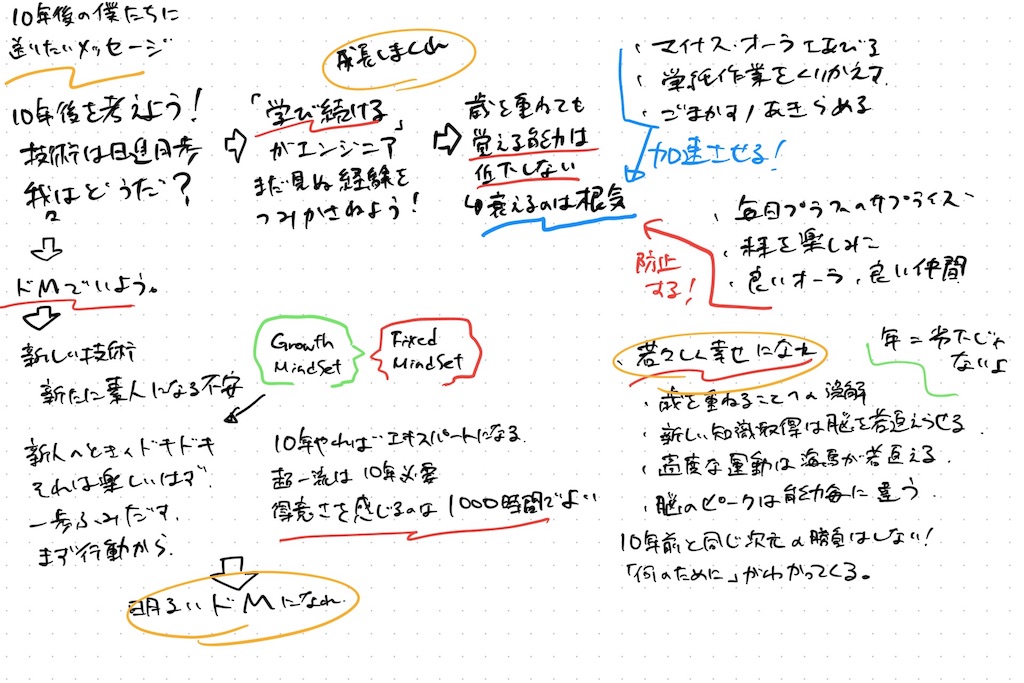 10年後の僕たちに
送りたいメッセージ
10年後を考えよう!
技術は日進月歩
我はどうだ?
ドMでいよう。
新しい技術
新たに素人になる不安
新人のときのドキドキ
それは楽しいはず.
一歩ふみだす.
まず行動から.
成長しまくれ
「学び続ける」
がエンジニア
まだ見ぬ経験を
つみかさねよう!
歳を重ねても
覚える能力は
低下しない
衰えるのは根気
Growth
MindSet
Fixed
MindSet
10年やればエキスパートになる.
超一流は10年必要
得意さを感じるのは1000時間でよい
明るいドMになれ.
・マイナス・オーラをあびる
・単純作業をくりかえす.
・ごまかす/あきらめる
加速させる!
・毎日プラスのサプライズ
・未来を楽しみに
・良いオーラ、良い仲間
防止
する!
・若々しく幸せになれ
年=劣化じゃ
ないよ
・歳を重ねることへの誤解
・新しい知識取得は脳を若返えらせる.
・適度な運動は海馬が若返える.
・脳のピークは能力毎に違う.
10年前と同じ次元の勝負はしない!
「何のために」がわかってくる。